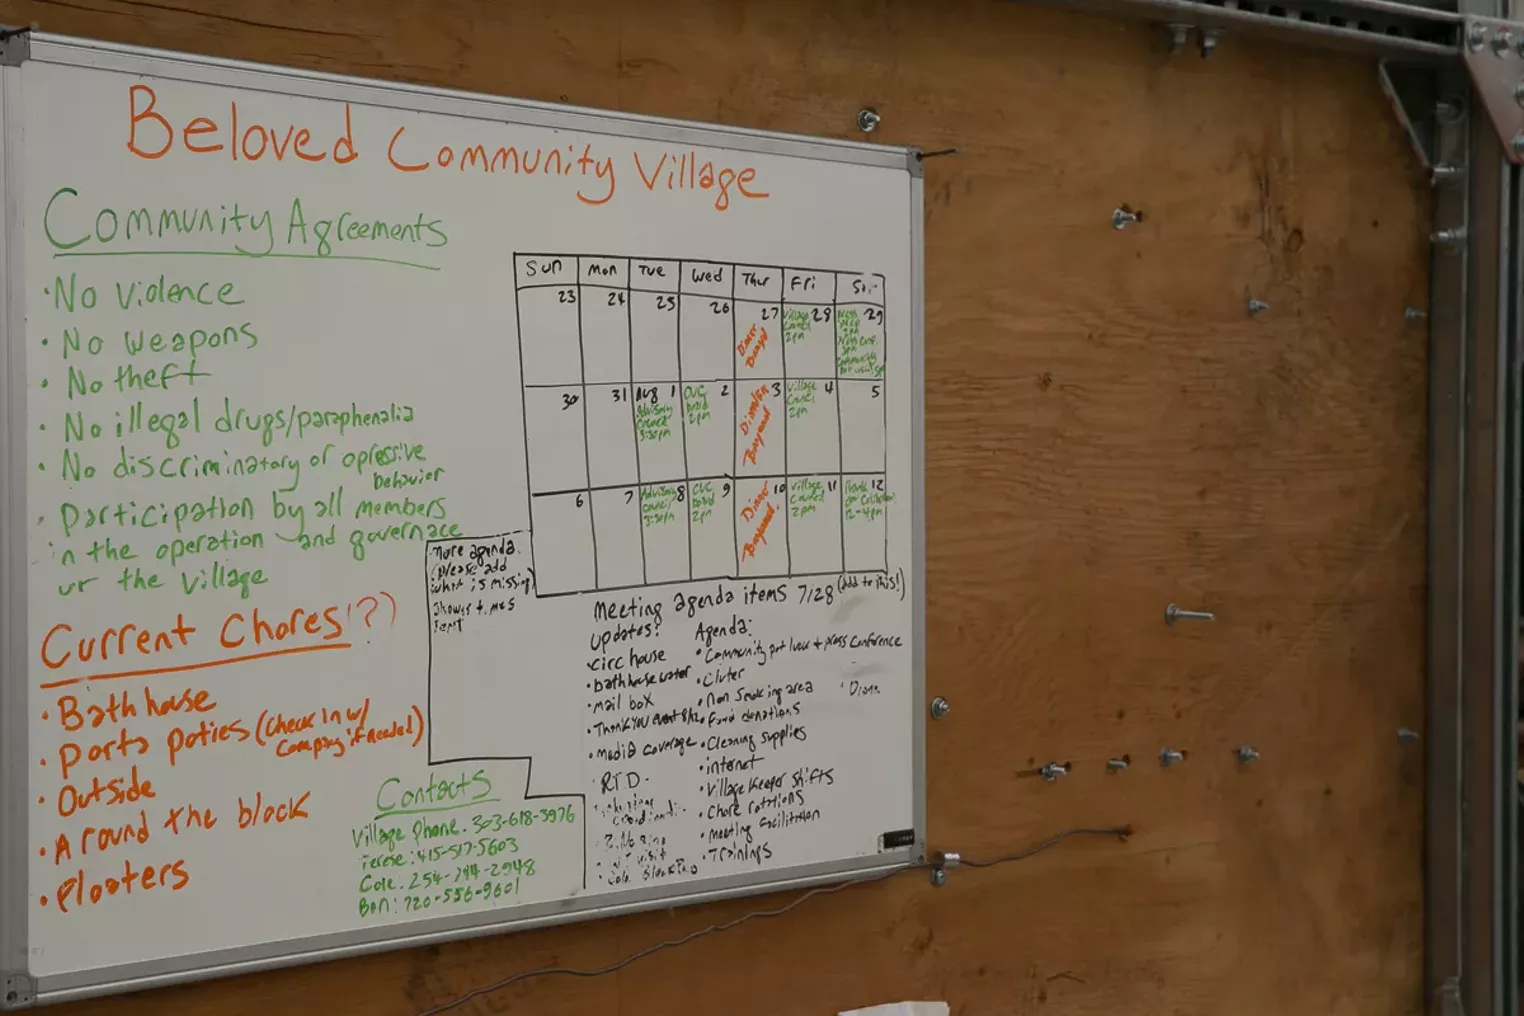 Beloved Community Village
Community Agreements
• No violence
• No weapons
• No theft
• No illegal drugs/paraphenalia
• No discriminatory or opressive
behavior
• Participation by all members
in the operation and governace
the village
Current Chores(?)
• Bathhouse
• Porta poties (check in w/
camping if needed)
• Outside
• Around the block
• Floaters
Sun Mon Tue Wed Thur Fri
23 24 25 26 27 28 29
Village
Council
2pm
30 31 Aug 1 2 3 4 5
Advisory
Council
3:30pm
CVC
board
2pm
Dinner
Village
Council
2pm
6 7 8 9 10 11 12
Advisory
Council
3:30pm
CVC
board
2pm
Dinner
Village
Council
2pm
Thank
you
12-4pm
More agenda.
(please add
what is missing)
Meeting agenda items 7/28 (add to this!)
updates:
• circ house
• bathhouse water
• mail box
• Thank you event 8/12
• media coverage
• RTD
Agenda:
• Community pot luck + press conference
• Cluter
• Non smoking area
• Food donations
• Cleaning supplies
• internet
• Village Keeper shifts
• Chore rotations
• Meeting facilitation
• Trainings
Contacts
Village Phone. 303-618-3976
Terese: 415-517-5603
Cole. 254-744-2948
Ben: 720-556-9601